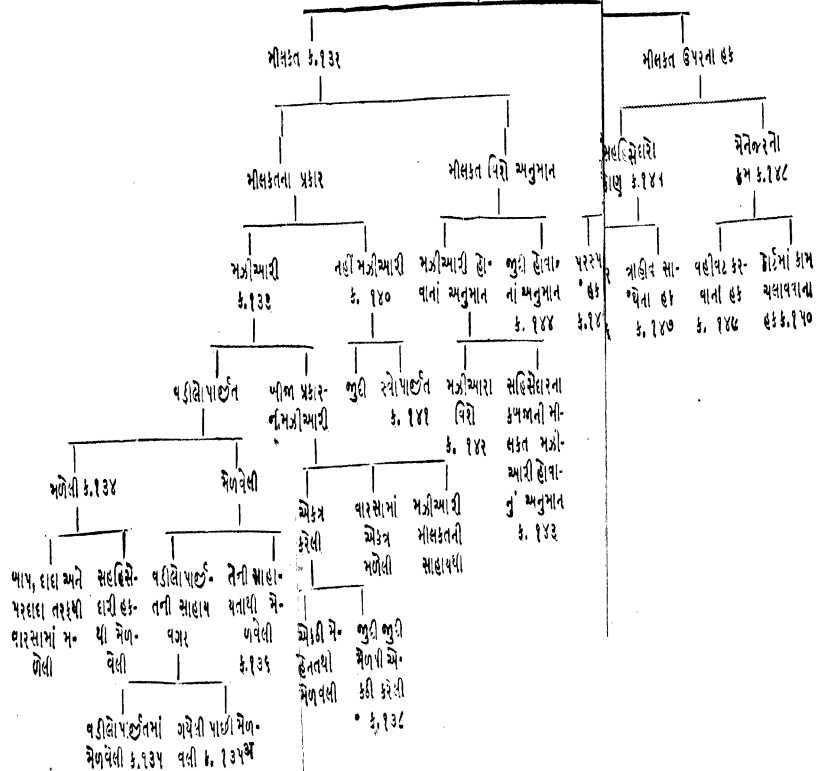 મીલકત ક.૧૩૨
મીલકત ઉપરના હક
મીલકતના પ્રકાર
મીલકત વિશે અનુમાન
સહહિસેદારો
કોણ ક.૧૪૫
મેનેજરનો
ક્રમ ક.૧૪૮
મઝીઆરી
ક.૧૩૩
નહીં મઝીઆરી
ક. ૧૪૦
મઝીઆરી હો-
વાનાં અનુમાન
જુદી હોવા-
નાં અનુમાન
ક. ૧૪૪
પરસ્પર
હક
ક.૧૪૬
ત્રાહીત સા-
થેના હક
ક. ૧૪૭
વહીવટ કર-
વાનો હક
ક. ૧૪૯
કોર્ટમાં કામ
ચલાવવાના
હક ક.૧૫૦
વડીલોપાર્જીત
બીજા પ્રકાર-
ની મઝીઆરી
જુદી
સ્વોપાર્જીત
ક. ૧૪૧
મઝીઆરા
વિશે
ક. ૧૪૨
સહિસેદારના
કબજાની મી-
લકત મઝી-
આરી હોવા-
નું અનુમાન
ક. ૧૪૩
મળેલી ક.૧૩૪
મેળવેલી
એકત્ર
કરેલી
વારસામાં
એકત્ર
મળેલી
મઝીઆરી
મીલકતની
સાહાયથી
બાપ, દાદા અને
પરદાદા તરફથી
વારસામાં મ-
ળેલી
સહહિસે-
દારી હક-
થી મેળ-
વેલી
વડીલોપાર્જી-
તની સાહાય
વગર
તેની સાહા-
યતાથી મે-
ળવેલી
ક.૧૩૬
એકઠી મે-
હેનતથી
મેળવેલી
જુદી જુદી
મેળવી એ-
કઠી કરેલી
ક.૧૩૮
વડીલોપાર્જીતમાં
મેળવેલી ક.૧૩૫
ગયેલી પાછી મેળ-
વેલી ક. ૧૩૫અ